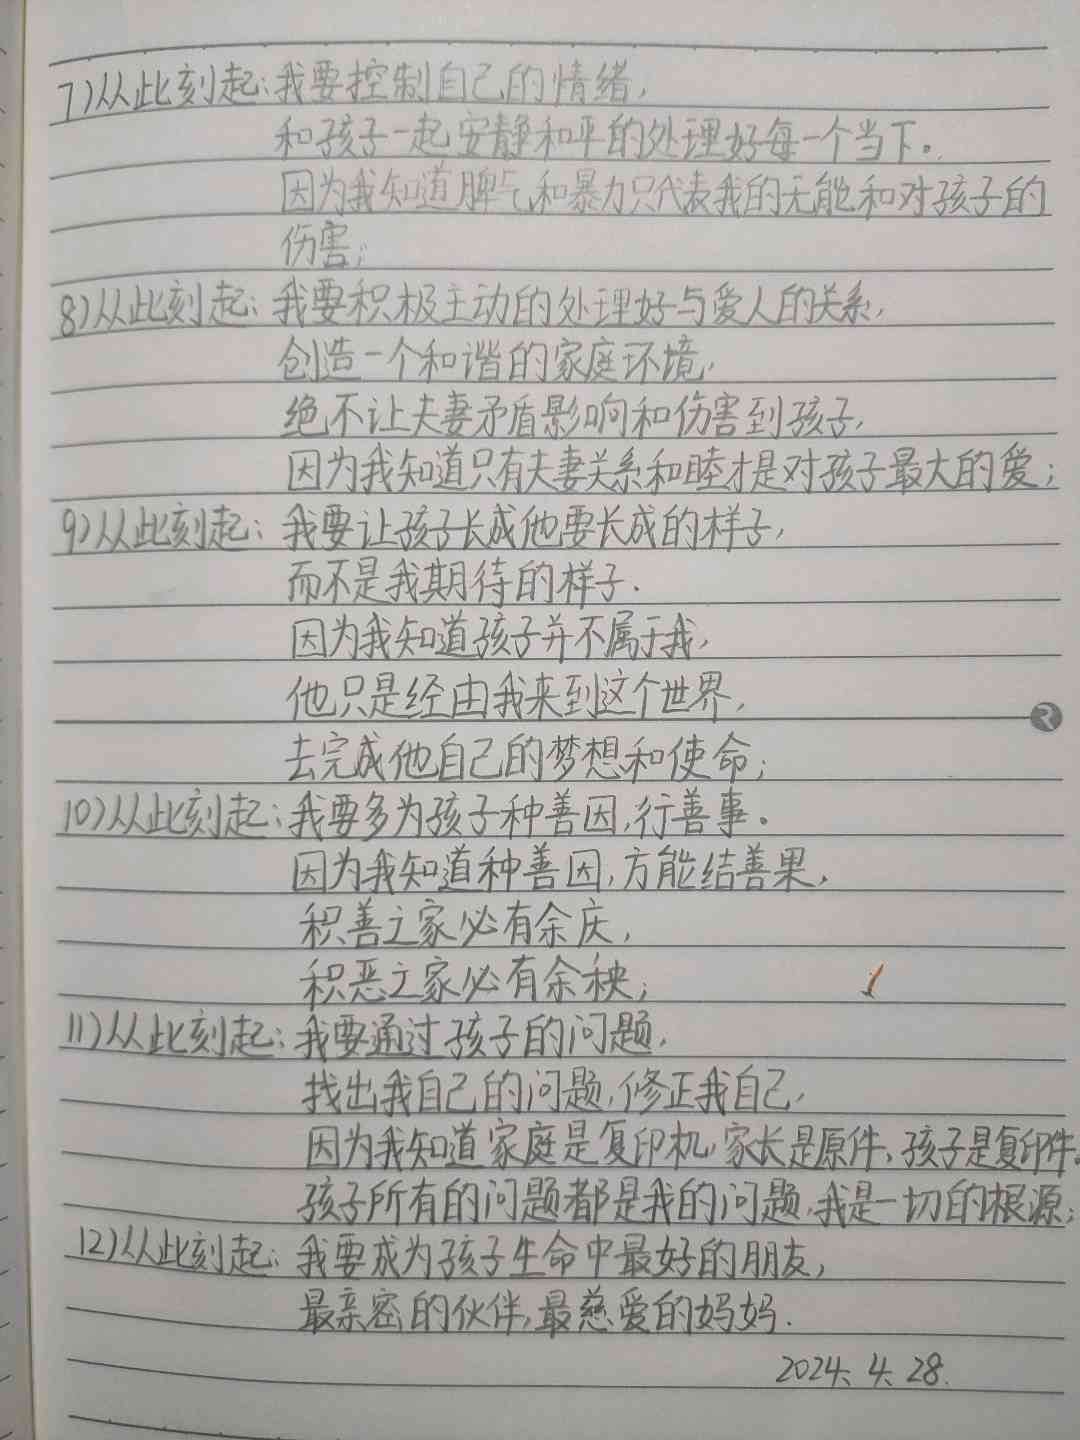 7)从此刻起:我要控制自己的情绪,
和孩子一起安静和平的处理好每一个当下。
因为我知道脾气和暴力只代表我的无能和对孩子的
伤害;
8)从此刻起:我要积极主动的处理好与爱人的关系,
创造一个和谐的家庭环境,
绝不让夫妻矛盾影响和伤害到孩子,
因为我知道只有夫妻关系和睦才是对孩子最大的爱;
9)从此刻起:我要让孩子长成他要长成的样子,
而不是我期待的样子.
因为我知道孩子并不属于我,
他只是经由我来到这个世界,
2
去完成他自己的梦想和使命;
10)从此刻起:我要多为孩子种善因,行善事。
因为我知道种善因,方能结善果,
积善之家必有余庆,
积恶之家必有余秧;
11)从此刻起:我要通过孩子的问题,
找出我自己的问题,修正我自己,
因为我知道家庭是复印机,家长是原件,孩子是复印件。
孩子所有的问题都是我的问题,我是一切的根源;
12)从此刻起:我要成为孩子生命中最好的朋友,
最亲密的伙伴,最慈爱的妈妈.
2024.4.28.